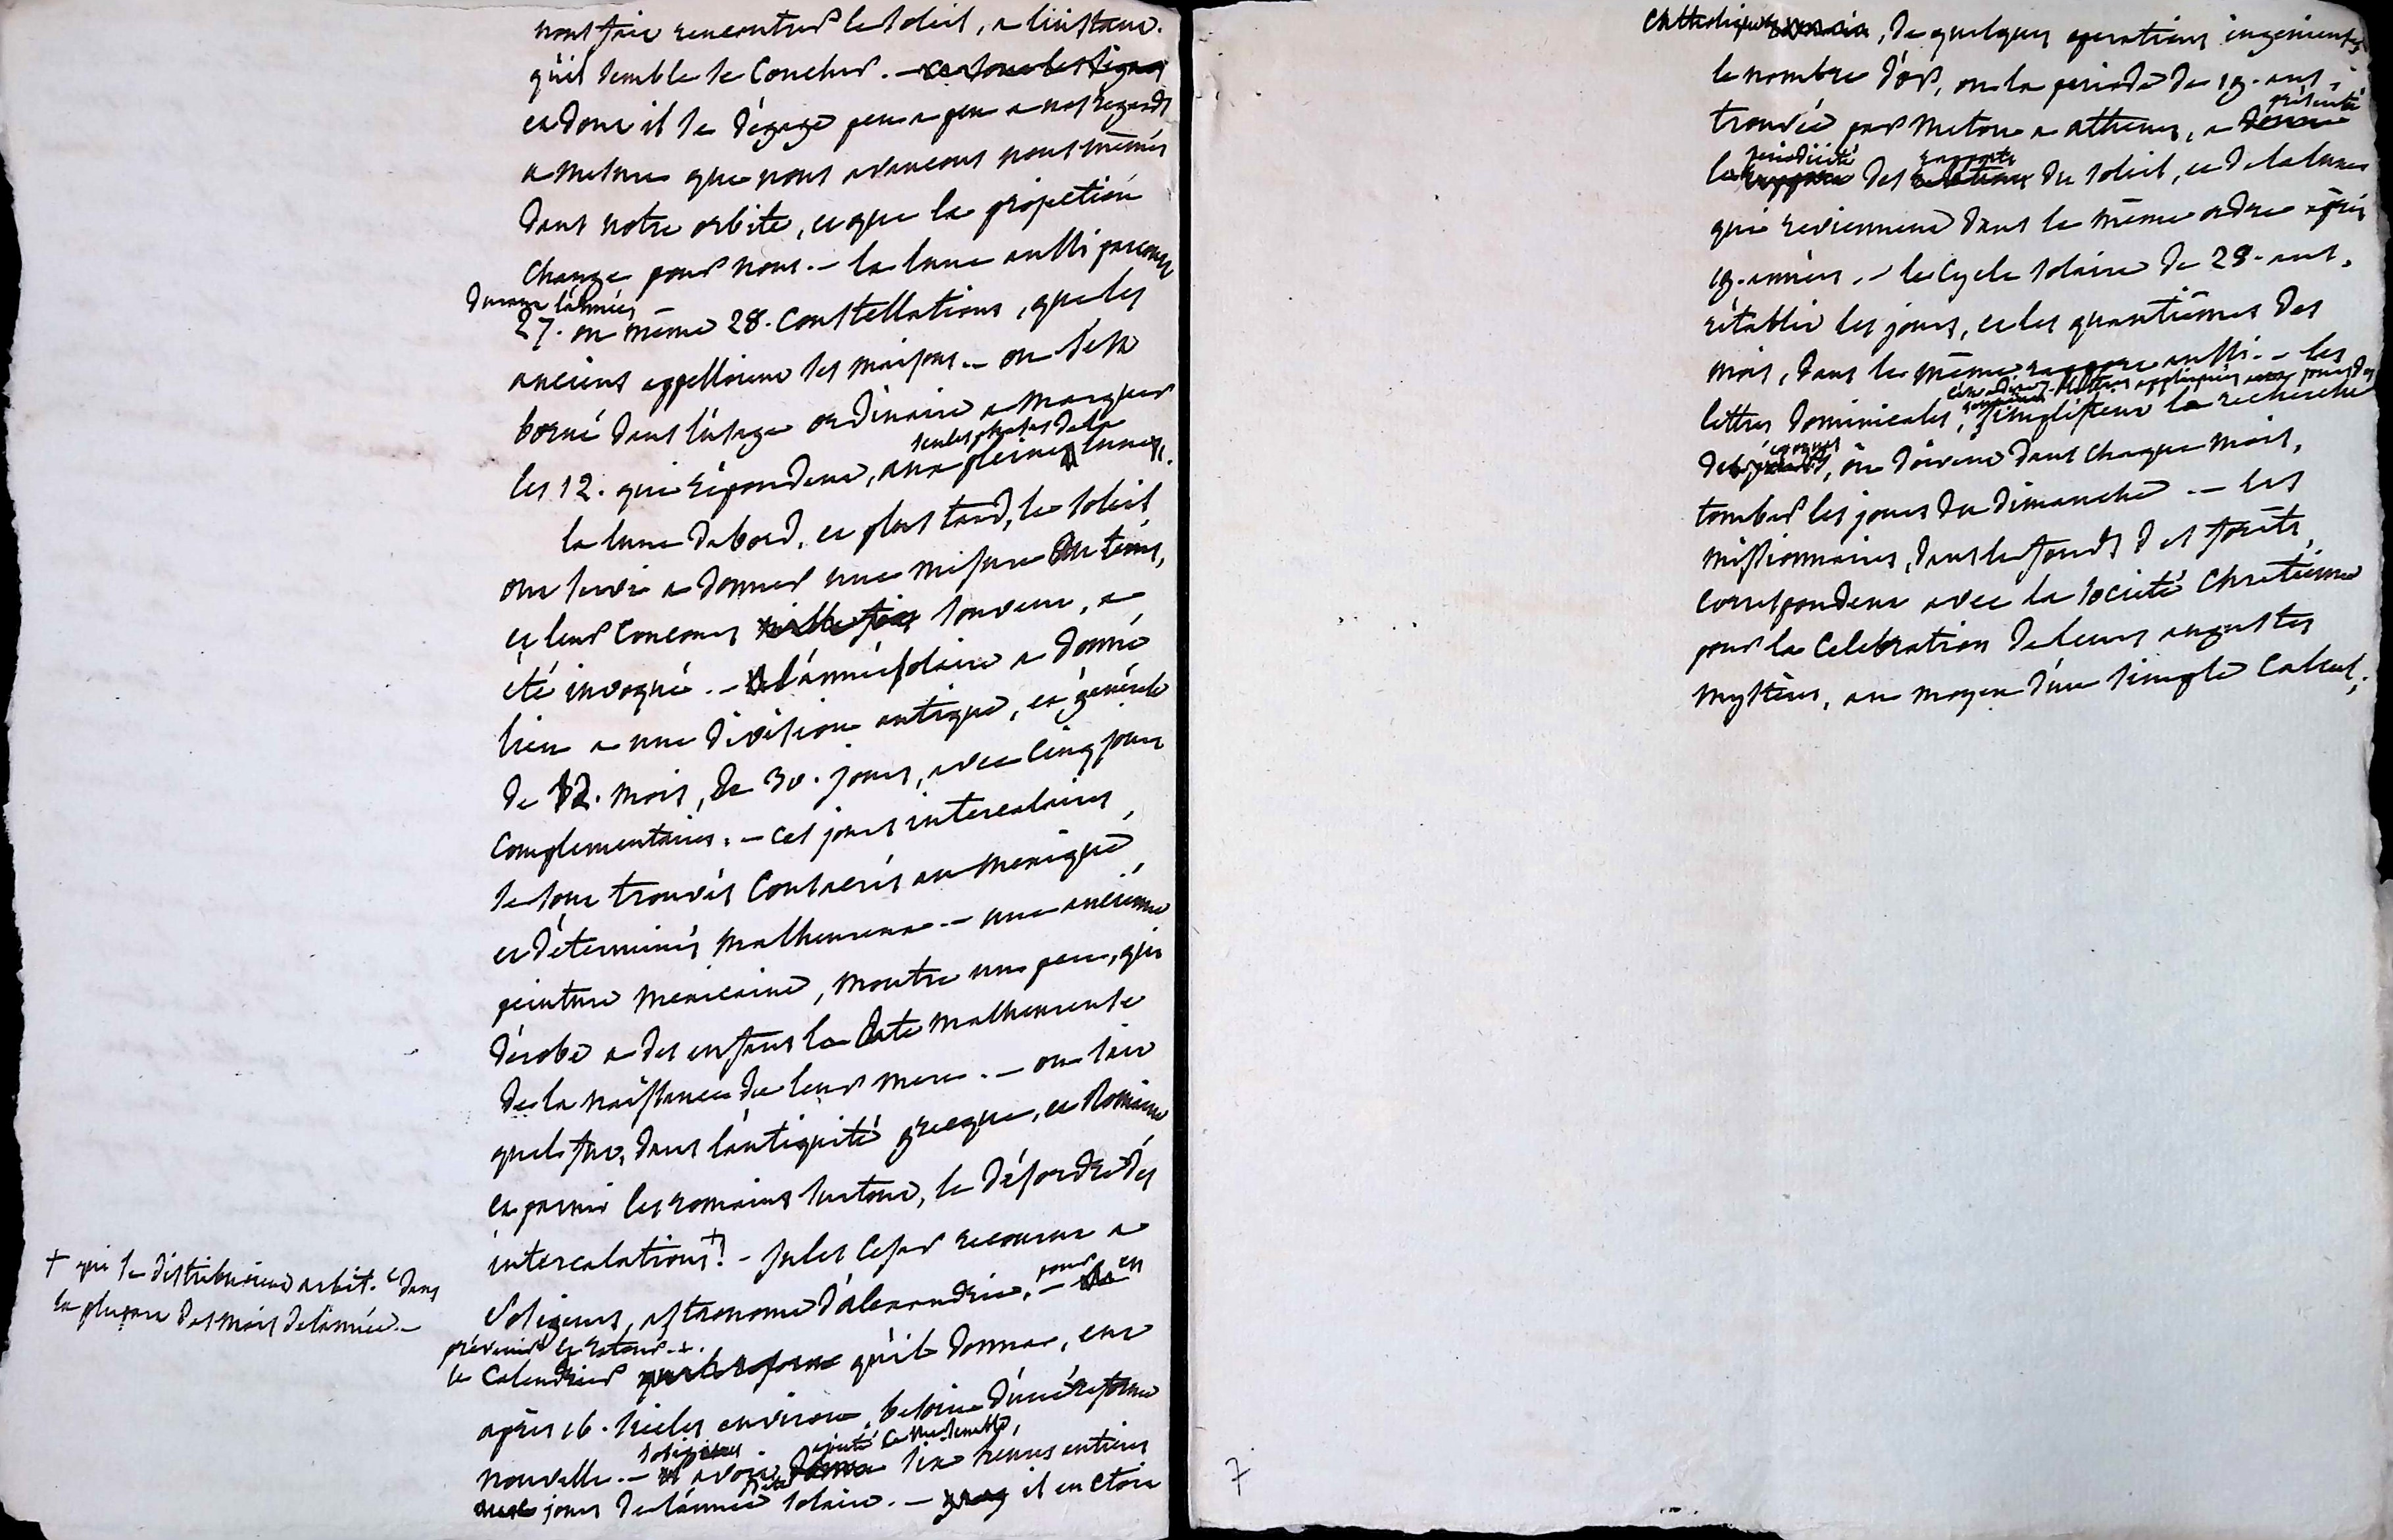 nous fait rencontrer le soleil, a l'instant.
qu'il semble se coucher. - ce sont les signes
et dont il se dégage peu a peu a nos regards
a mesure que nous avancons nous mêmes
dans notre orbite, et que la projection
change pour nous. - la lune aussi parcourt
durant l'année
27. ou même 28. constellations, que les
anciens appelloient ses maisons. - on s'est
borné dans l'usage ordinaire a marquer
seules phases de la
les 12. qui répondent, aux pleines lunes.
la lune d'abord, et plus tard, le soleil
ont servi a donner une mesure du tems,
et leur concours souvent, a
été invoqué. - l'année solaire a donné
lieu a une division antique, et générale
de 12. mois, de 30. jours, avec cinq jours
complementaires. - ces jours intercalaires,
se sont trouvés consacrés au mexique,
et déterminés malheureux. - une ancienne
peinture mexicaine, montre un pere, qui
dérobe a des enfans la date malheureuse
de la naissance de leur mere. - on sait
quel fut, dans l'antiquité grecque, et Romaine
et parmi les romains surtout, le désordre des
intercalations +! - Jules Cesar recourut a
Sosigenes, astronome d'alexandrie, - pour en
prévenir le retour. +.
le calendrier qu'il donna, eut
après 16. siecles environ, besoin d'une réforme
sosigenes ajouté ce me semble,
nouvelle. - avoit six heures entieres
jours de l'année solaire. - il en étoit
+ qui se distribuoient arbit.t dans
la plupart des mois de l'année. -
catholique, de quelques operations ingenieuses
le nombre d'or, ou la periode de 19. ans,
présenté
trouvée par Meton a athenes, a donné
périodicité rapports
la des relations du soleil, et de la lune
qui reviennent dans le même ordre après
19. années. - le cycle solaire de 28. ans,
rétablit les jours, et les quantièmes des
mois, dans le même rapport aussi. - les
c'est a dire 7. lettres appliquées aux jours de
lettres dominicales, simplifient la recherche
époques
des, ou doivent dans chaque mois,
tomber les jours du dimanche. - les
missionnaires, dans le fonds des forêts,
correspondent avec la société chretienne
pour la celebration de leurs augustes
mystères, au moyen d'un simple calcul;
7